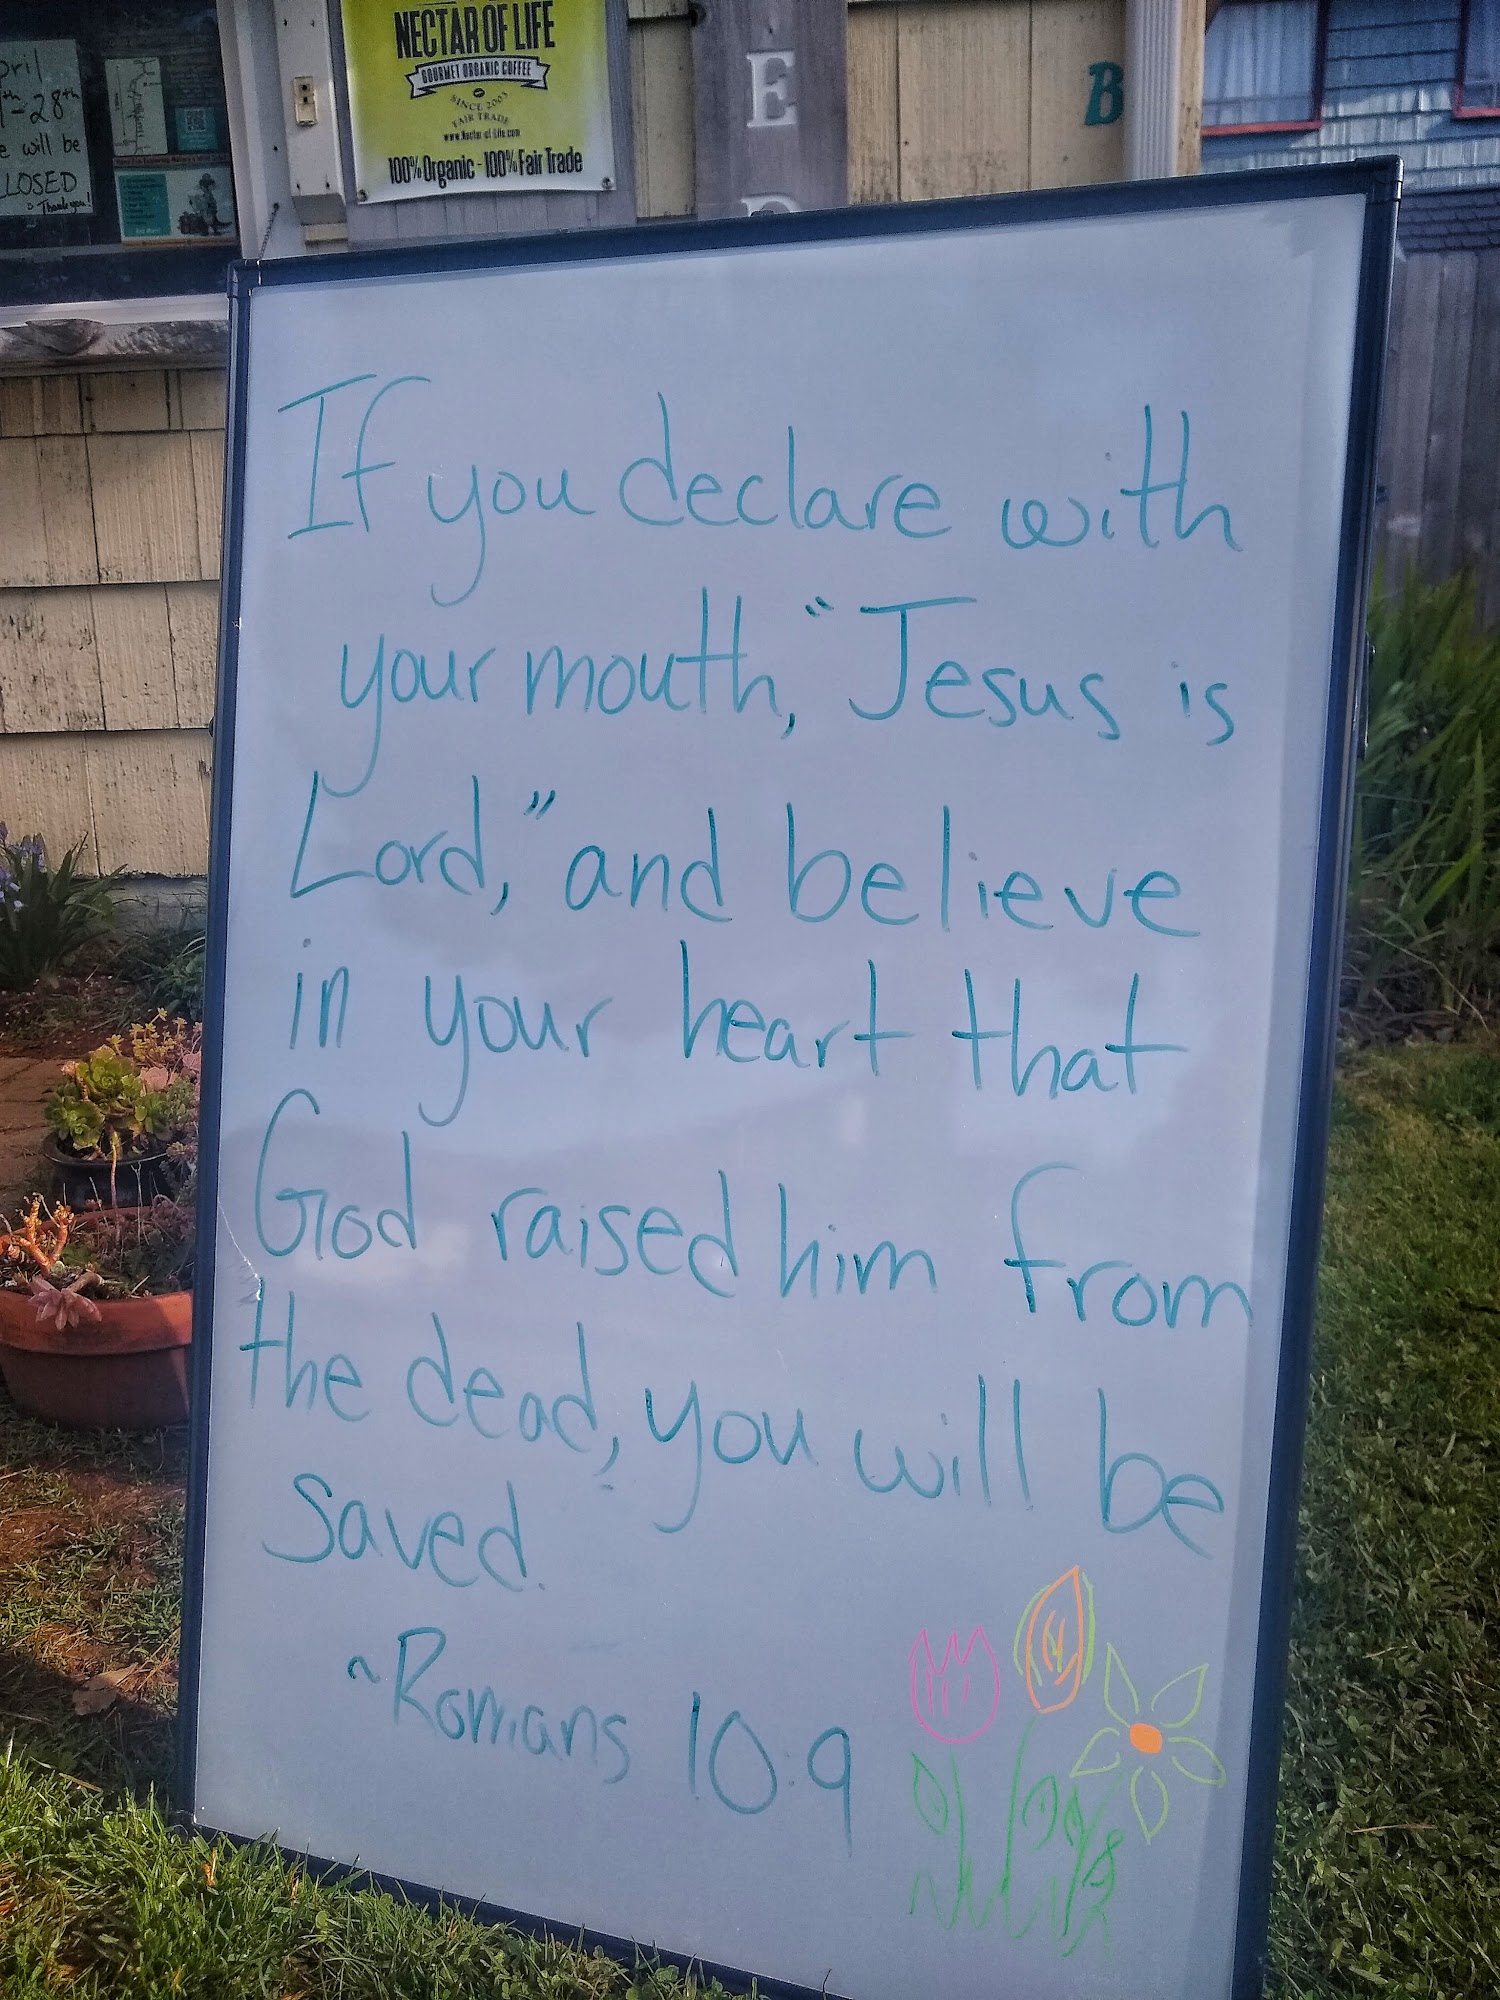 NECTAR OF LIFE
GOURMET ORGANIC COFFEE
SINCE 2003
FAIR TRADE
www.Nectar-of-Life.com
100% Organic - 100% Fair Trade
E
B
28th
will be
LOSED
Thank you!
If you declare with
your mouth, "Jesus is
Lord," and believe
in your heart that
God raised him from
the dead, you will be
saved.
~Romans 10:9